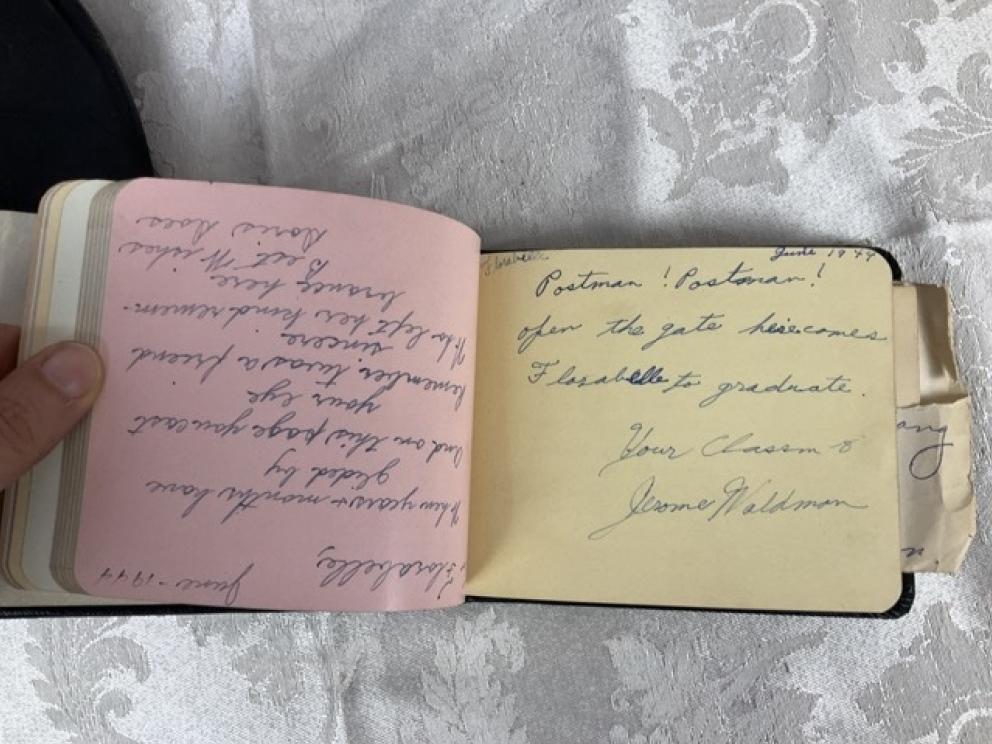 June - 1944
Florabelle,
When years + months have
glided by
And on this page you cast
your eye
Remember, twas a friend
sincere
Who left her kind remem-
brance, here
Best Wishes
Doris
Florabelle
June 1944
Postman ! Postman !
open the gate herecomes
Florabelle to graduate.
Your Classm
Jerome Waldman
ang
n.